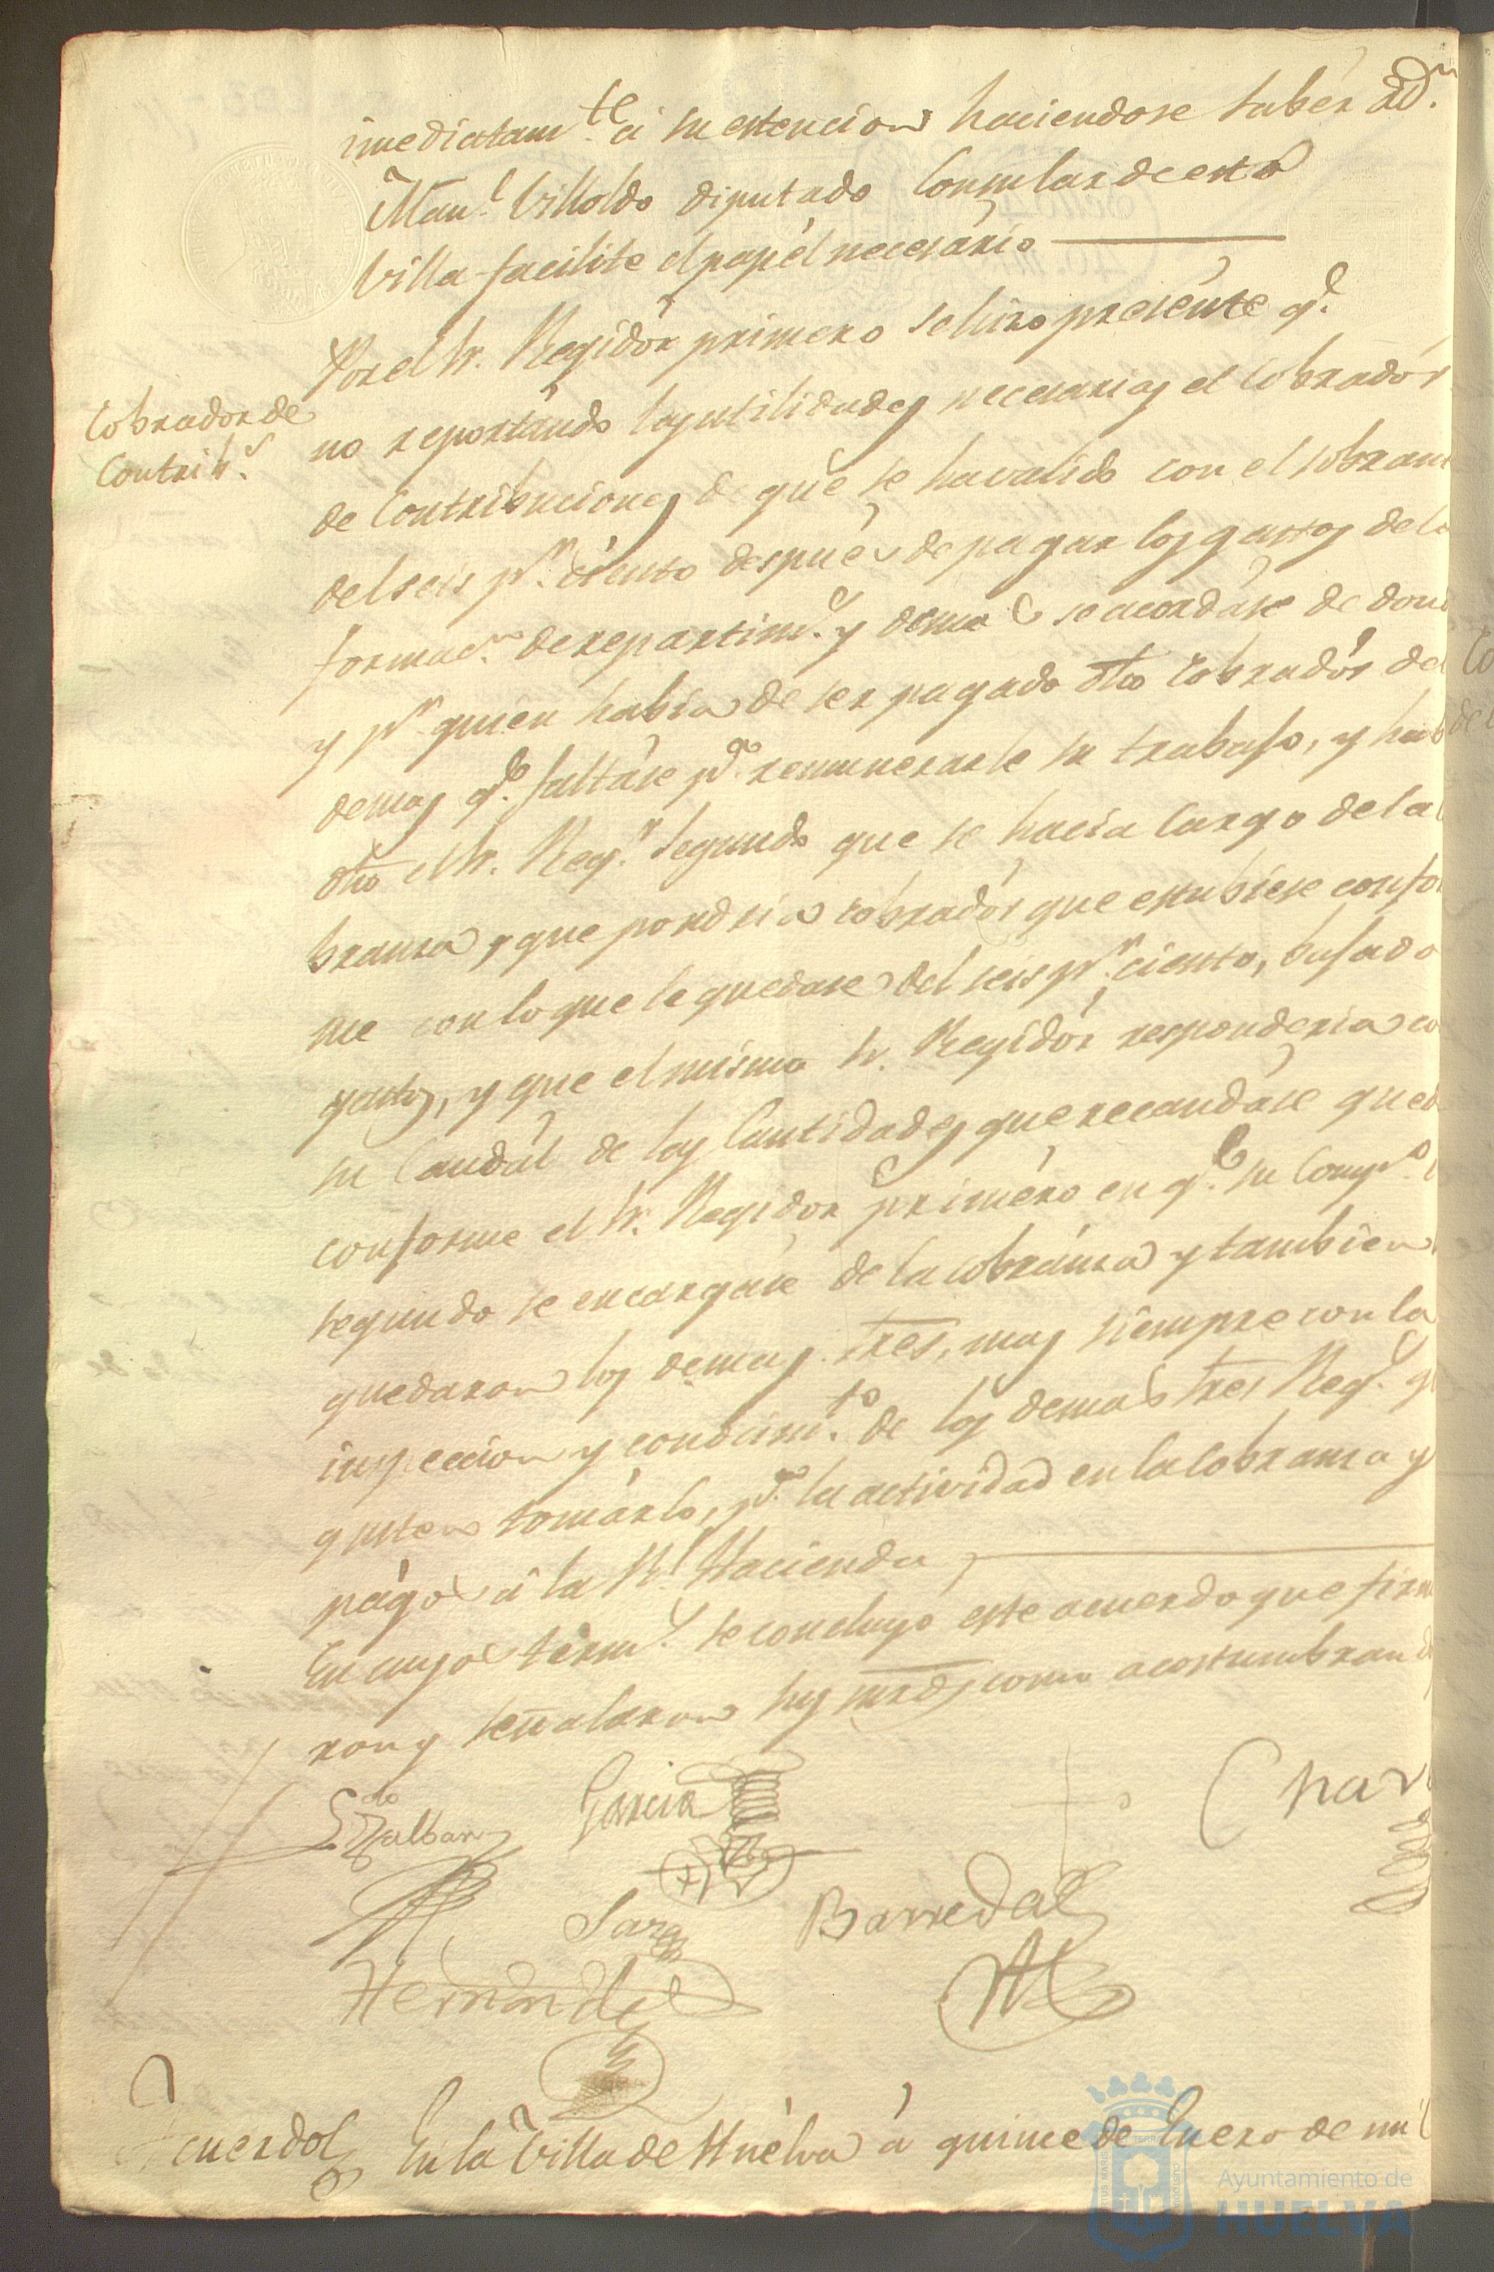 imediatam.te á su estencion haciendose saber á D.n
Man.l Villoldo diputado Consular de esta
Villa facilite el papél necesário
Por el Sr. Regidór primero se hizo presénte q.e
Cobrador de
Contrib.s
no reportando las utilidades necesarias el cobradór
de Contribuciones de que se ha valido con el sobrant
del seis p.r ciento despues de pagar los gastos de la
formac.n de repartim.s y demas se acordáse de dond
y p.r quien habia de ser pagado dho cobradór de l
demas q.e faltáse p.a remunerarle su trabajo, y hab
dho el Sr. Reg.r segundo que se hacia cargo de la
branza, y que pondria cobradór que estubiese confor
me con lo que le quedase del seis p.r ciento, bajado
gastos, y que el mismo Sr. Regidór responderia co
su Caudál de las Cantidades que recaudáse qued
conforme el Sr. Regidor priméro en q.e su Comp.o
segundo se encargáse de la cobránza y tambien
quedaron los demas tres, mas siempre con la
inspeccion y conocim.to de los demás tres Reg.s q
gusten tomárlo, p.a la actividad en la Cobranza y
págo á la R.l Hacienda
En cuyos térm.s se concluyó este acuerdo que firm
ron y señalaron sus mrds como acostumbran d
Garcia
Char
Barreda
Hernandez
Acuerdo En la Villa de Huelva á quince de Enero de mil
Ayuntamiento de
HUELVA